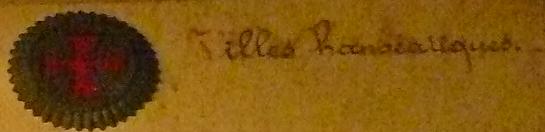 Villes hanséatiques.